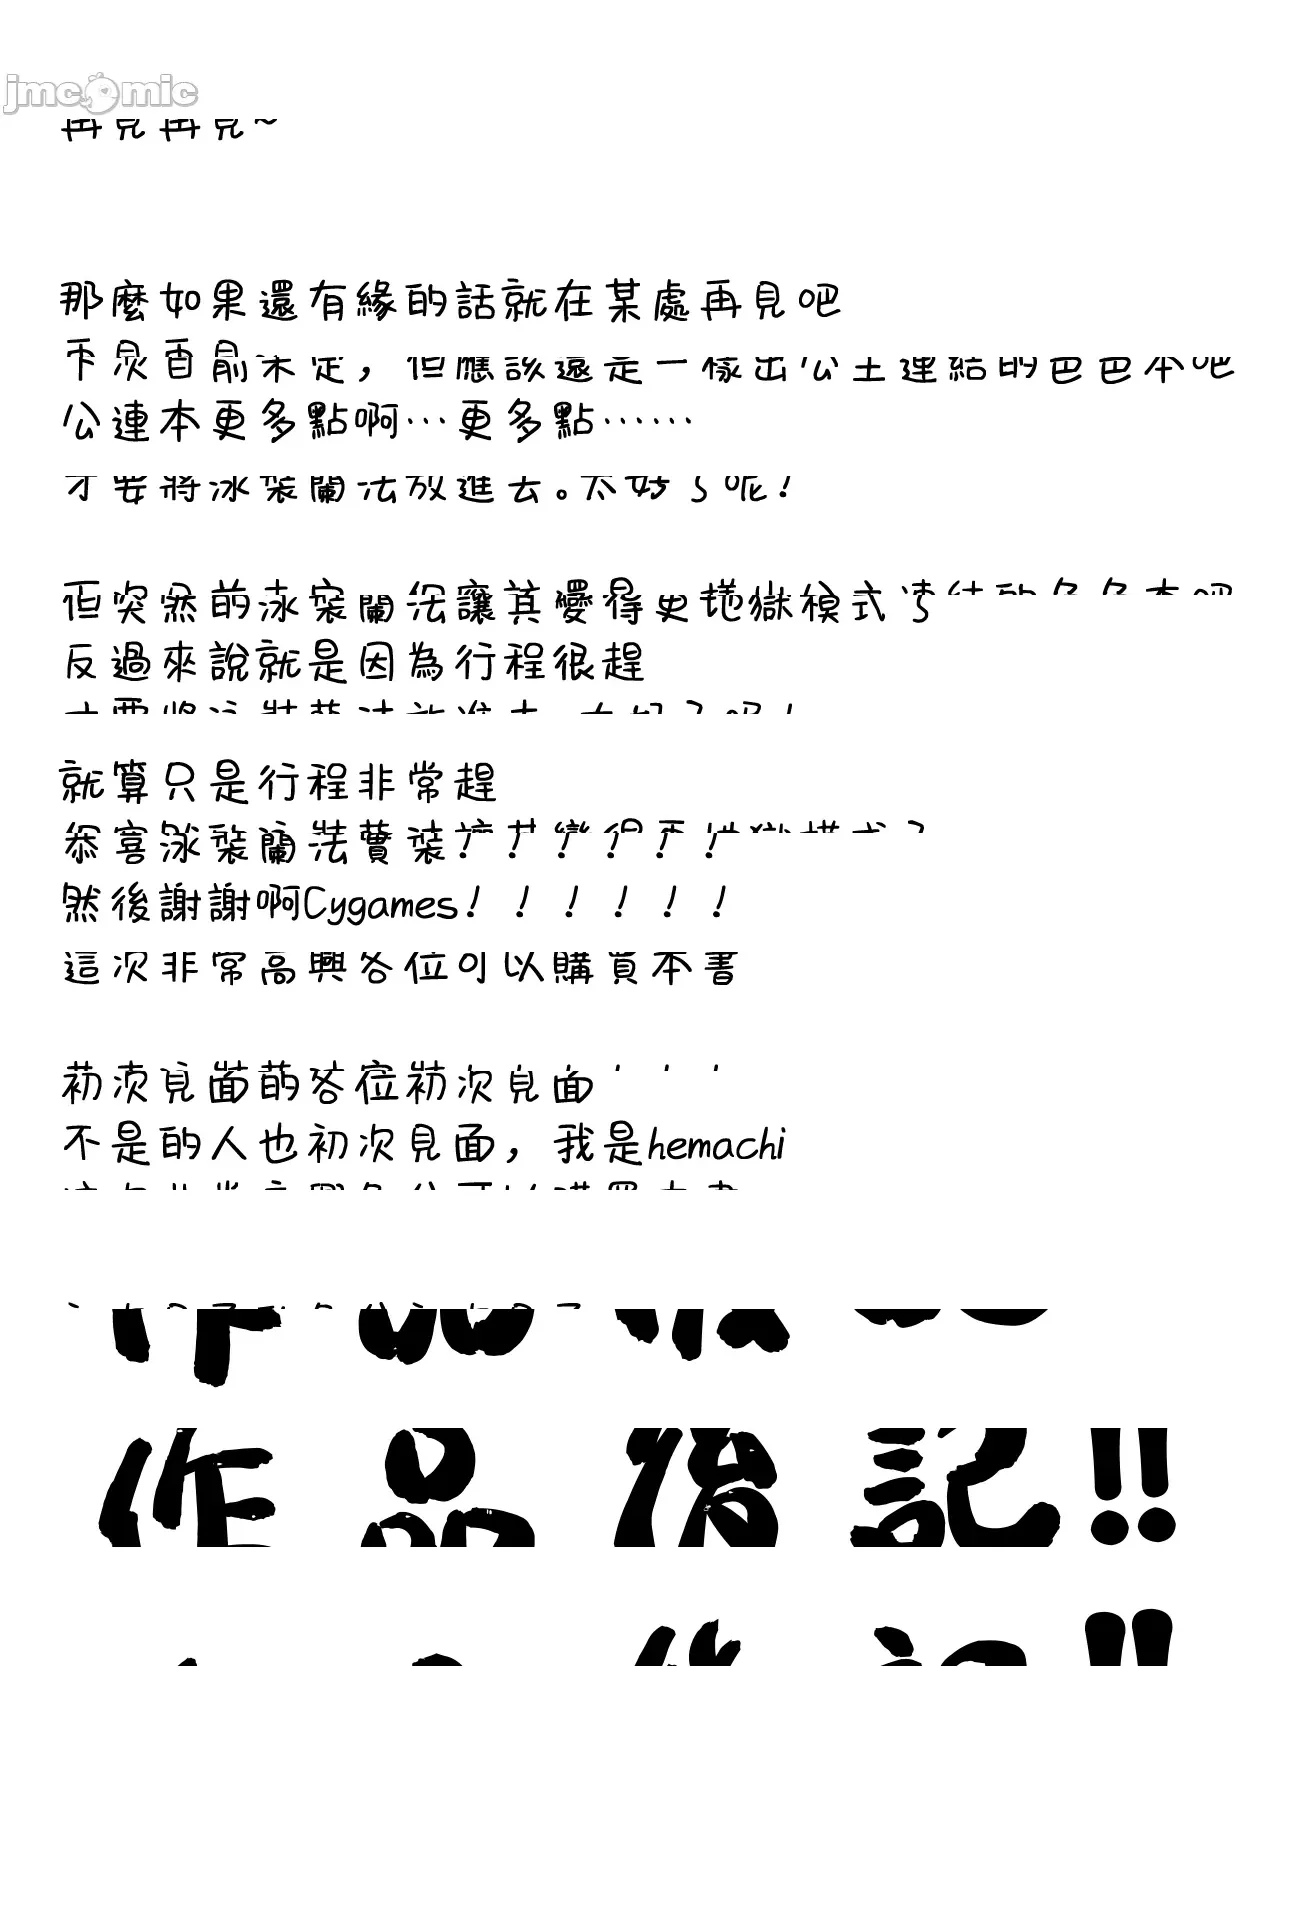 jmcomic
再見再見~
那麼如果還有緣的話就在某處再見吧
未定，但應該還是一樣出公主連結的色色本吧
公連本更多點啊…更多點……
才要將泳裝蘭法放進去。太好了呢！
但突然的泳裝蘭法讓其變得更地獄模式了
反過來說就是因為行程很趕
就算只是行程非常趕
恭喜泳裝蘭法實裝！！！！！！
然後謝謝啊Cygames！！！！！！
這次非常高興各位可以購買本書
初次見面的各位初次見面
不是的人也初次見面，我是hemachi
作品後記!!